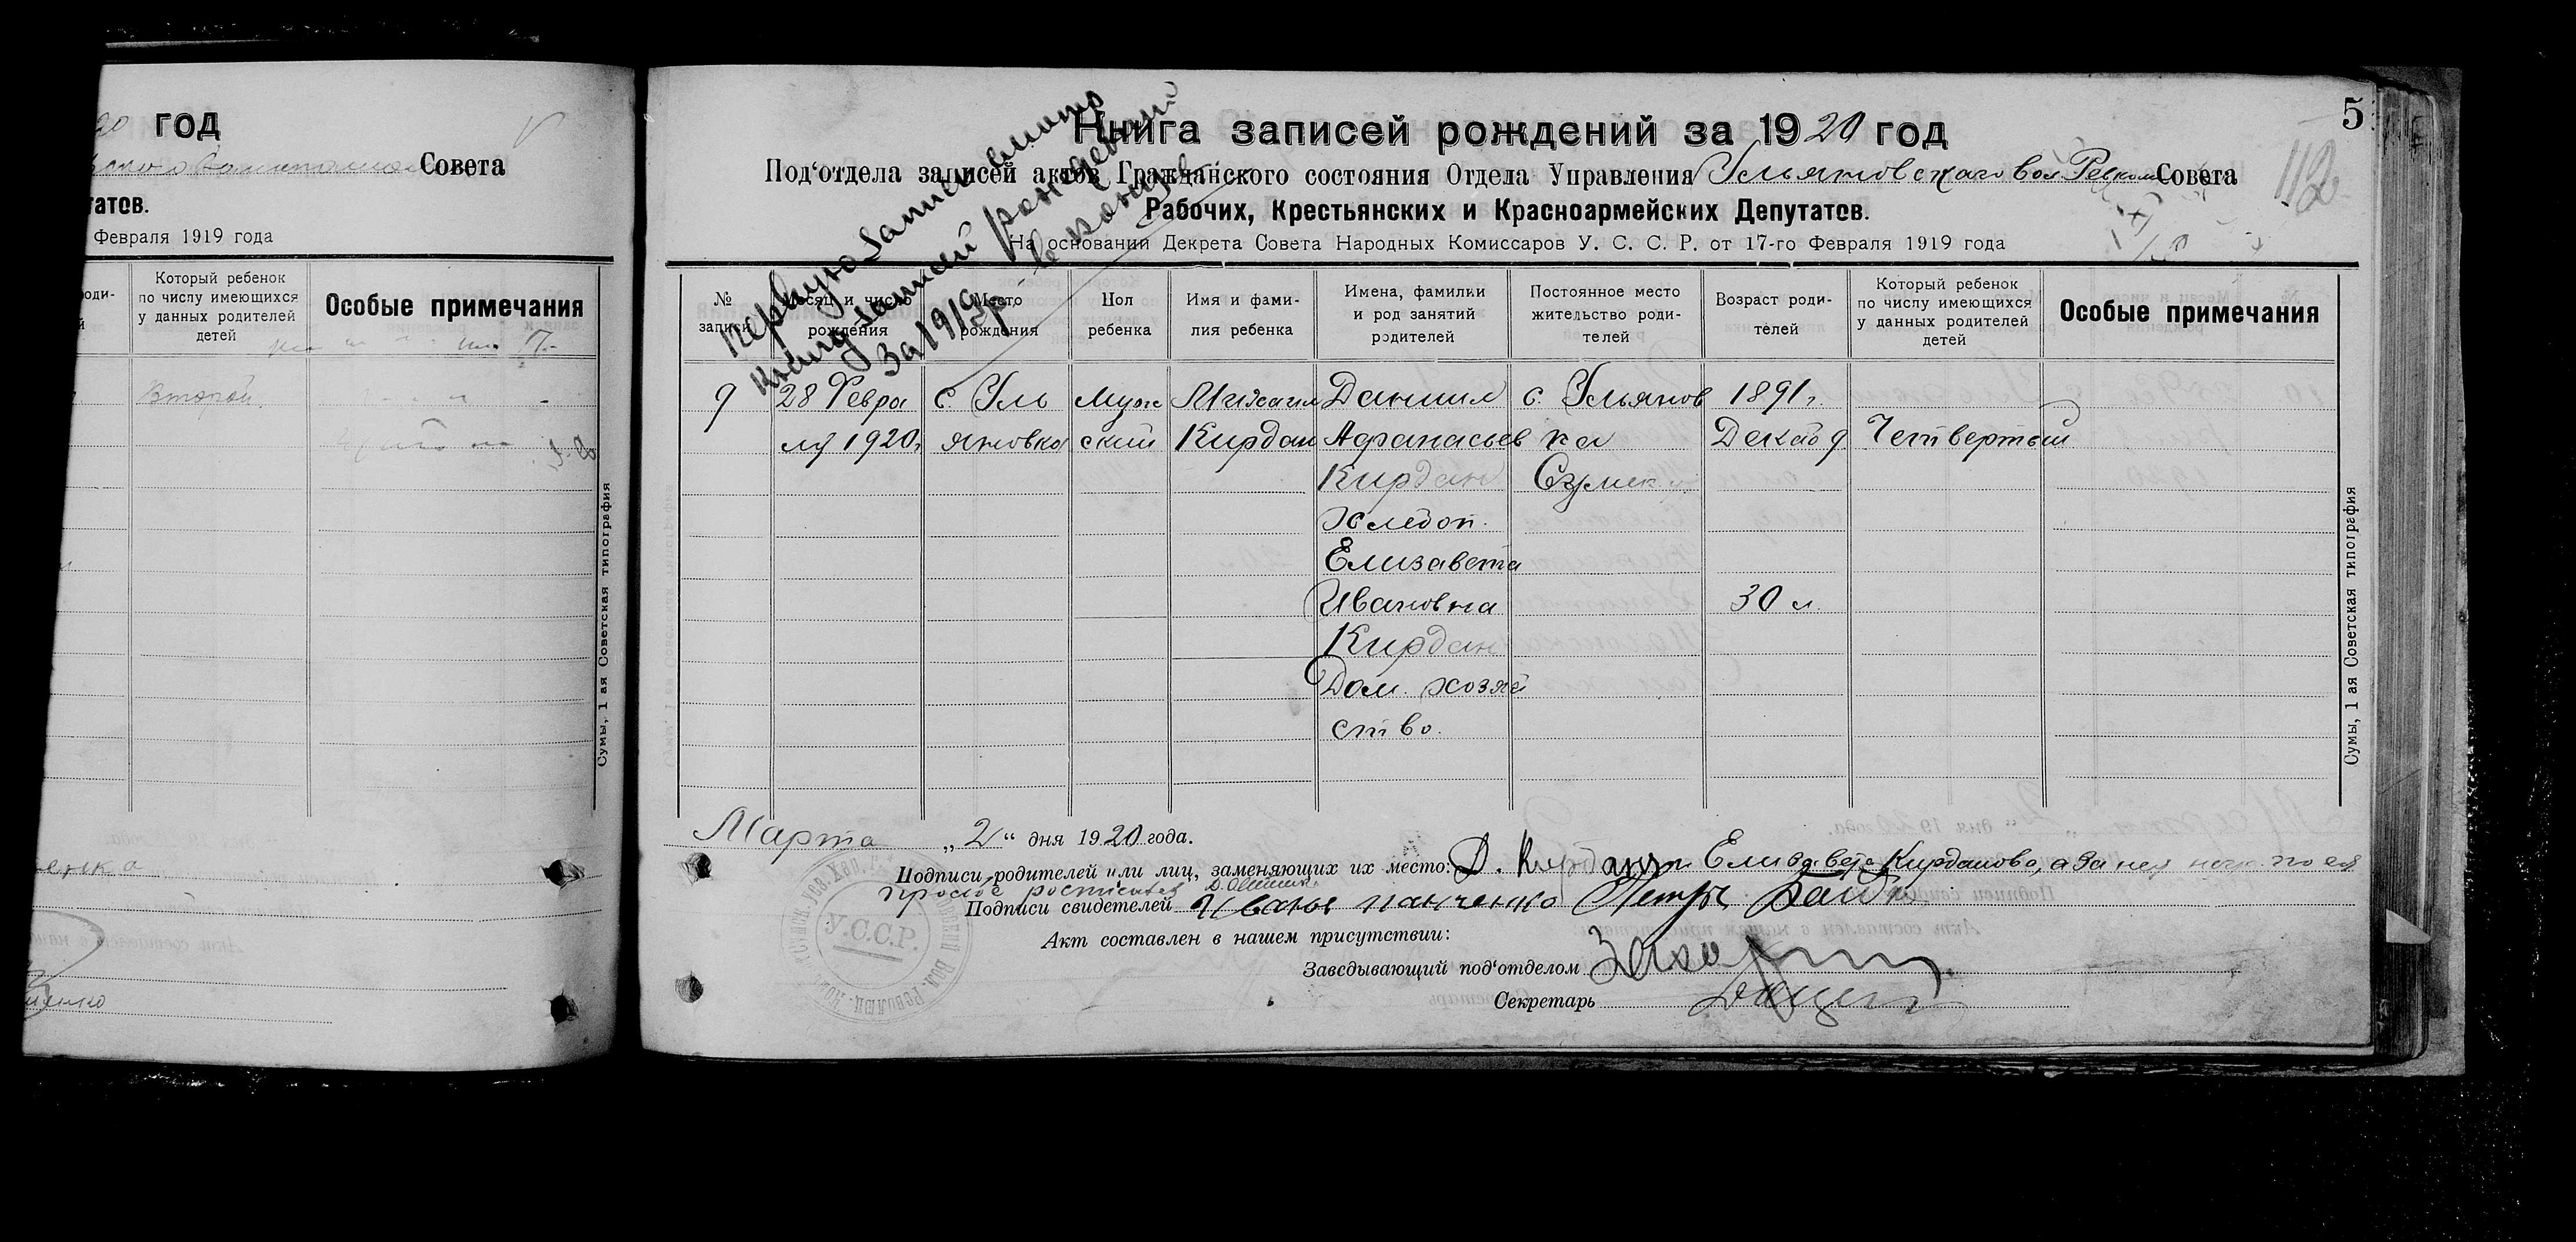 год
Совета
татов.
Февраля 1919 года
Который ребенок
по числу имеющихся
у данных родителей
детей
Особые примечания
Второй
Сумы, 1 ая Советская типография
5
112
Книга записей рождений за 1920 год
Под‘отдела записей актов Гражданского состояния Отдела Управления Ульяновскаго вол Ревком Совета
Рабочих, Крестьянских и Красноармейских Депутатов.
На основании Декрета Совета Народных Комиссаров У. С. С. Р. от 17-го Февраля 1919 года
Первую запись смотр
книгу записей рождений
За 1919 г. в конце
№
записи
Месяц и число
рождения
Место
рождения
Пол
ребенка
Имя и фами-
лия ребенка
Имена, фамилии
и род занятий
родителей
Постоянное место
жительство роди-
телей
Возраст роди-
телей
Который ребенок
по числу имеющихся
у данных родителей
детей
Особые примечания
9 28 Февра с. Уль Муж Михаил Даниил с. Ульянов 1891 г.
ля 1920 г. яновка ский Кирдан Афанасьев ка Декаб 9 Четвертый
Кирдан Сумск
хлебоп.
Елизавета
Ивановна 30 л.
Кирдан
Дом. хозяй
ство.
Сумы, 1 ая Советская типография
Марта „2“ дня 1920 года.
Подписи родителей или лиц, заменяющих их место: Д. Кирдан Елизавета Кирданова, а за нея негр. по ея
просьбе росписался
Подписи свидетелей Иванъ Панченко Петръ
У.С.С.Р.
Акт составлен в нашем присутствии:
Заведывающий под‘отделом
Секретарь